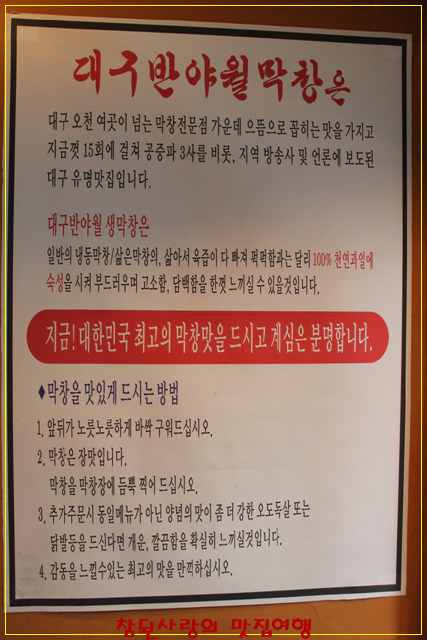 대구반야월막창은
대구 오천 여곳이 넘는 막창전문점 가운데 으뜸으로 꼽히는 맛을 가지고
지금껏 15회에 걸쳐 공중파 3사를 비롯, 지역 방송사 및 언론에 보도된
대구 유명맛집입니다.
대구반야월 생막창은
일반의 냉동막창/삶은막창의, 삶아서 육즙이 다 빠져 퍽퍽함과는 달리 100% 천연과일에
숙성을 시켜 부드러우며 고소함, 담백함을 한껏 느끼실 수 있을것입니다.
지금! 대한민국 최고의 막창맛을 드시고 계심은 분명합니다.
♦막창을 맛있게 드시는 방법
1. 앞뒤가 노릇노릇하게 바싹 구워드십시오.
2. 막창은 장맛입니다.
막창을 막창장에 듬뿍 찍어 드십시오.
3. 추가주문시 동일메뉴가 아닌 양념의 맛이 좀 더 강한 오도독살 또는
닭발등을 드신다면 개운, 깔끔함을 확실히 느끼실것입니다.
4. 감동을 느낄수있는 최고의 맛을 만끽하십시오.
참된사랑의 맛집여행